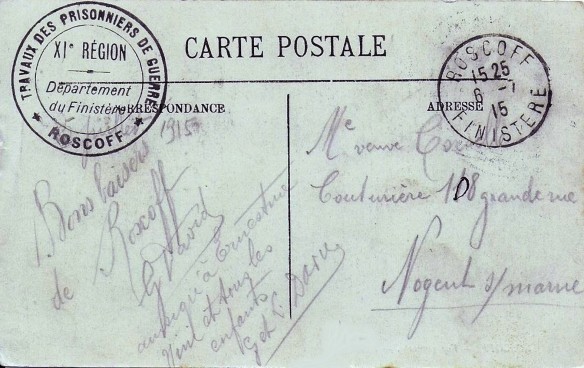 CARTE POSTALE
TRAVAUX DES PRISONNIERS DE GUERRE
XIe RÉGION
Département
du Finistère
★ ROSCOFF ★
CORRESPONDANCE
ADRESSE
ROSCOFF
15 25
6 -1
15
FINISTERE
1915
Bons baisers
de Roscoff
G David
ainsi qu'à Ernestine
et tous les
enfants
G et L David
Me veuve
Couturière 118 grande rue
Nogent s/ marne